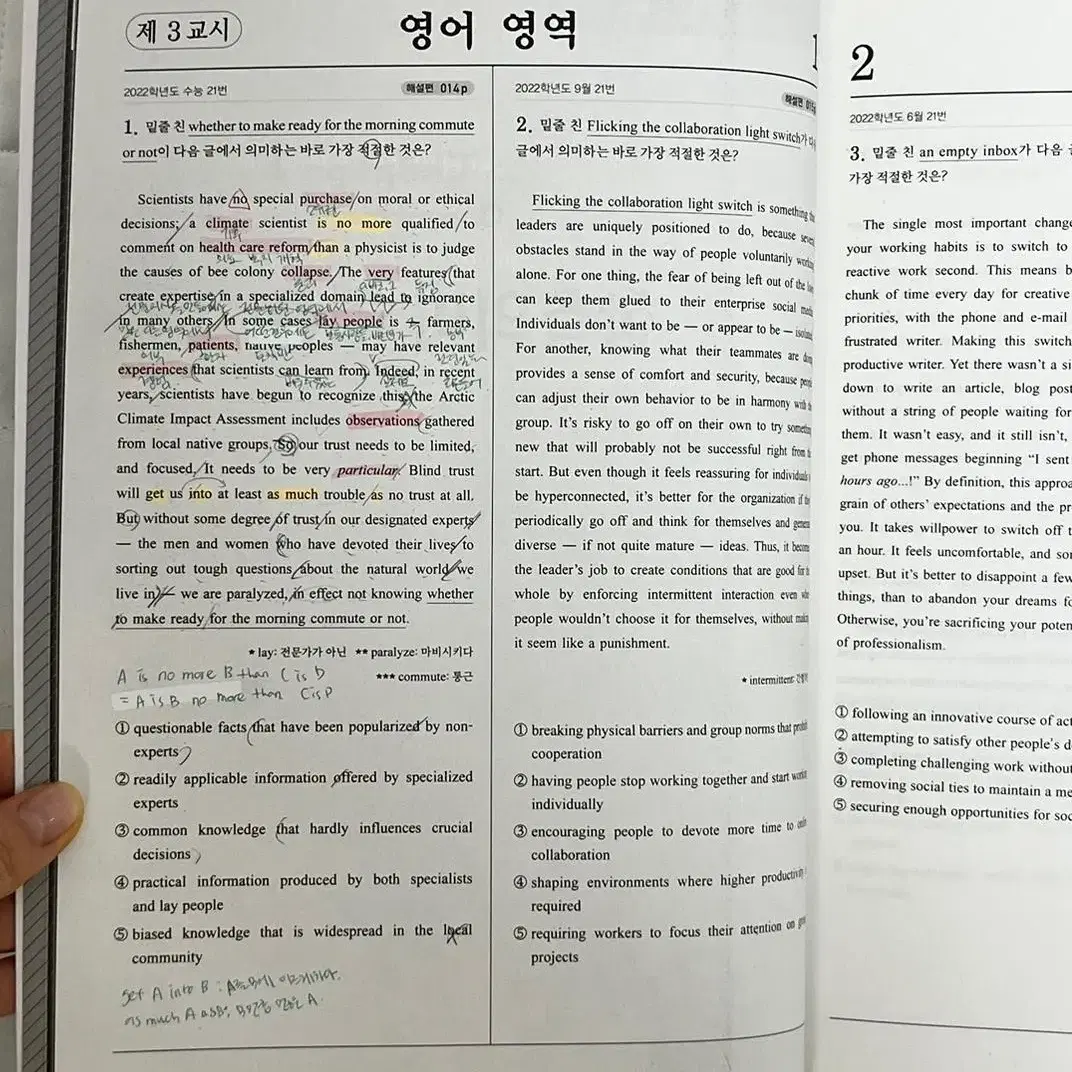 제 3 교시
영어 영역
2022학년도 수능 21번
해설편 014p
1. 밑줄 친 whether to make ready for the morning commute
or not이 다음 글에서 의미하는 바로 가장 적절한 것은?
Scientists have no special purchase on moral or ethical
decisions; a climate scientist is no more qualified to
comment on health care reform than a physicist is to judge
the causes of bee colony collapse. The very features that
create expertise in a specialized domain lead to ignorance
in many others. In some cases lay people — farmers,
fishermen, patients, native peoples — may have relevant
experiences that scientists can learn from. Indeed, in recent
years, scientists have begun to recognize this: the Arctic
Climate Impact Assessment includes observations gathered
from local native groups. So our trust needs to be limited,
and focused. It needs to be very particular. Blind trust
will get us into at least as much trouble as no trust at all.
But without some degree of trust in our designated experts
— the men and women who have devoted their lives to
sorting out tough questions about the natural world we
live in — we are paralyzed, in effect not knowing whether
to make ready for the morning commute or not.
* lay: 전문가가 아닌 ** paralyze: 마비시키다
*** commute: 통근
A is no more B than C is D
= A is B no more than C is D
① questionable facts that have been popularized by non-
experts
② readily applicable information offered by specialized
experts
③ common knowledge that hardly influences crucial
decisions
④ practical information produced by both specialists
and lay people
⑤ biased knowledge that is widespread in the local
community
get A into B :
as much A as B:
2022학년도 9월 21번
해설편
2. 밑줄 친 Flicking the collaboration light switch가
글에서 의미하는 바로 가장 적절한 것은?
Flicking the collaboration light switch is something
leaders are uniquely positioned to do, because
obstacles stand in the way of people voluntarily working
alone. For one thing, the fear of being left out of the
can keep them glued to their enterprise social
Individuals don't want to be — or appear to be —
For another, knowing what their teammates are
provides a sense of comfort and security, because
can adjust their own behavior to be in harmony with
group. It's risky to go off on their own to try
new that will probably not be successful right from
start. But even though it feels reassuring for individuals
be hyperconnected, it's better for the organization if
periodically go off and think for themselves and
diverse — if not quite mature — ideas. Thus, it
the leader's job to create conditions that are good for
whole by enforcing intermittent interaction even
people wouldn't choose it for themselves, without
it seem like a punishment.
* intermittent:
① breaking physical barriers and group norms that
cooperation
② having people stop working together and start
individually
③ encouraging people to devote more time to
collaboration
④ shaping environments where higher productivity
required
⑤ requiring workers to focus their attention on
projects
2
2022학년도 6월 21번
3. 밑줄 친 an empty inbox가 다음
가장 적절한 것은?
The single most important change
your working habits is to switch to
reactive work second. This means
chunk of time every day for creative
priorities, with the phone and e-mail
frustrated writer. Making this switch
productive writer. Yet there wasn't a
down to write an article, blog post
without a string of people waiting for
them. It wasn't easy, and it still isn't,
get phone messages beginning "I sent
hours ago...!" By definition, this
grain of others' expectations and the
you. It takes willpower to switch off
an hour. It feels uncomfortable, and
upset. But it's better to disappoint a few
things, than to abandon your dreams
Otherwise, you're sacrificing your
of professionalism.
① following an innovative course of
② attempting to satisfy other people's
③ completing challenging work without
④ removing social ties to maintain a
⑤ securing enough opportunities for